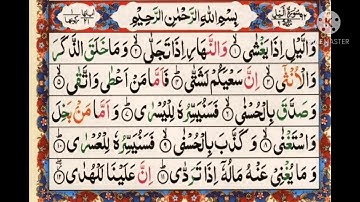 بِسْمِ اللهِ الرَّحْمٰنِ الرَّحِيْمِ
وَالَّيْلِ اِذَا يَغْشٰى ۙ وَالنَّهَارِ اِذَا تَجَلّٰى ۙ وَمَا خَلَقَ الذَّكَرَ
وَالْاُنْثٰۤى ۙ اِنَّ سَعْيَكُمْ لَشَتّٰى ؕ فَاَمَّا مَنْ اَعْطٰى وَاتَّقٰى ۙ
وَصَدَّقَ بِالْحُسْنٰى ۙ فَسَنُيَسِّرُهٗ لِلْيُسْرٰى ؕ وَاَمَّا مَنْۢ بَخِلَ
وَاسْتَغْنٰى ۙ وَكَذَّبَ بِالْحُسْنٰى ۙ فَسَنُيَسِّرُهٗ لِلْعُسْرٰى ؕ
وَمَا يُغْنِيْ عَنْهُ مَالُهٗۤ اِذَا تَرَدّٰى ؕ اِنَّ عَلَيْنَا لَلْهُدٰى